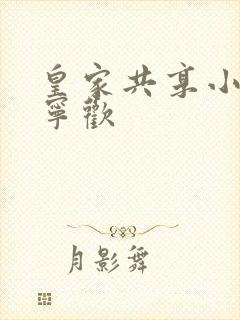 皇家共享小
寧歡
月影舞